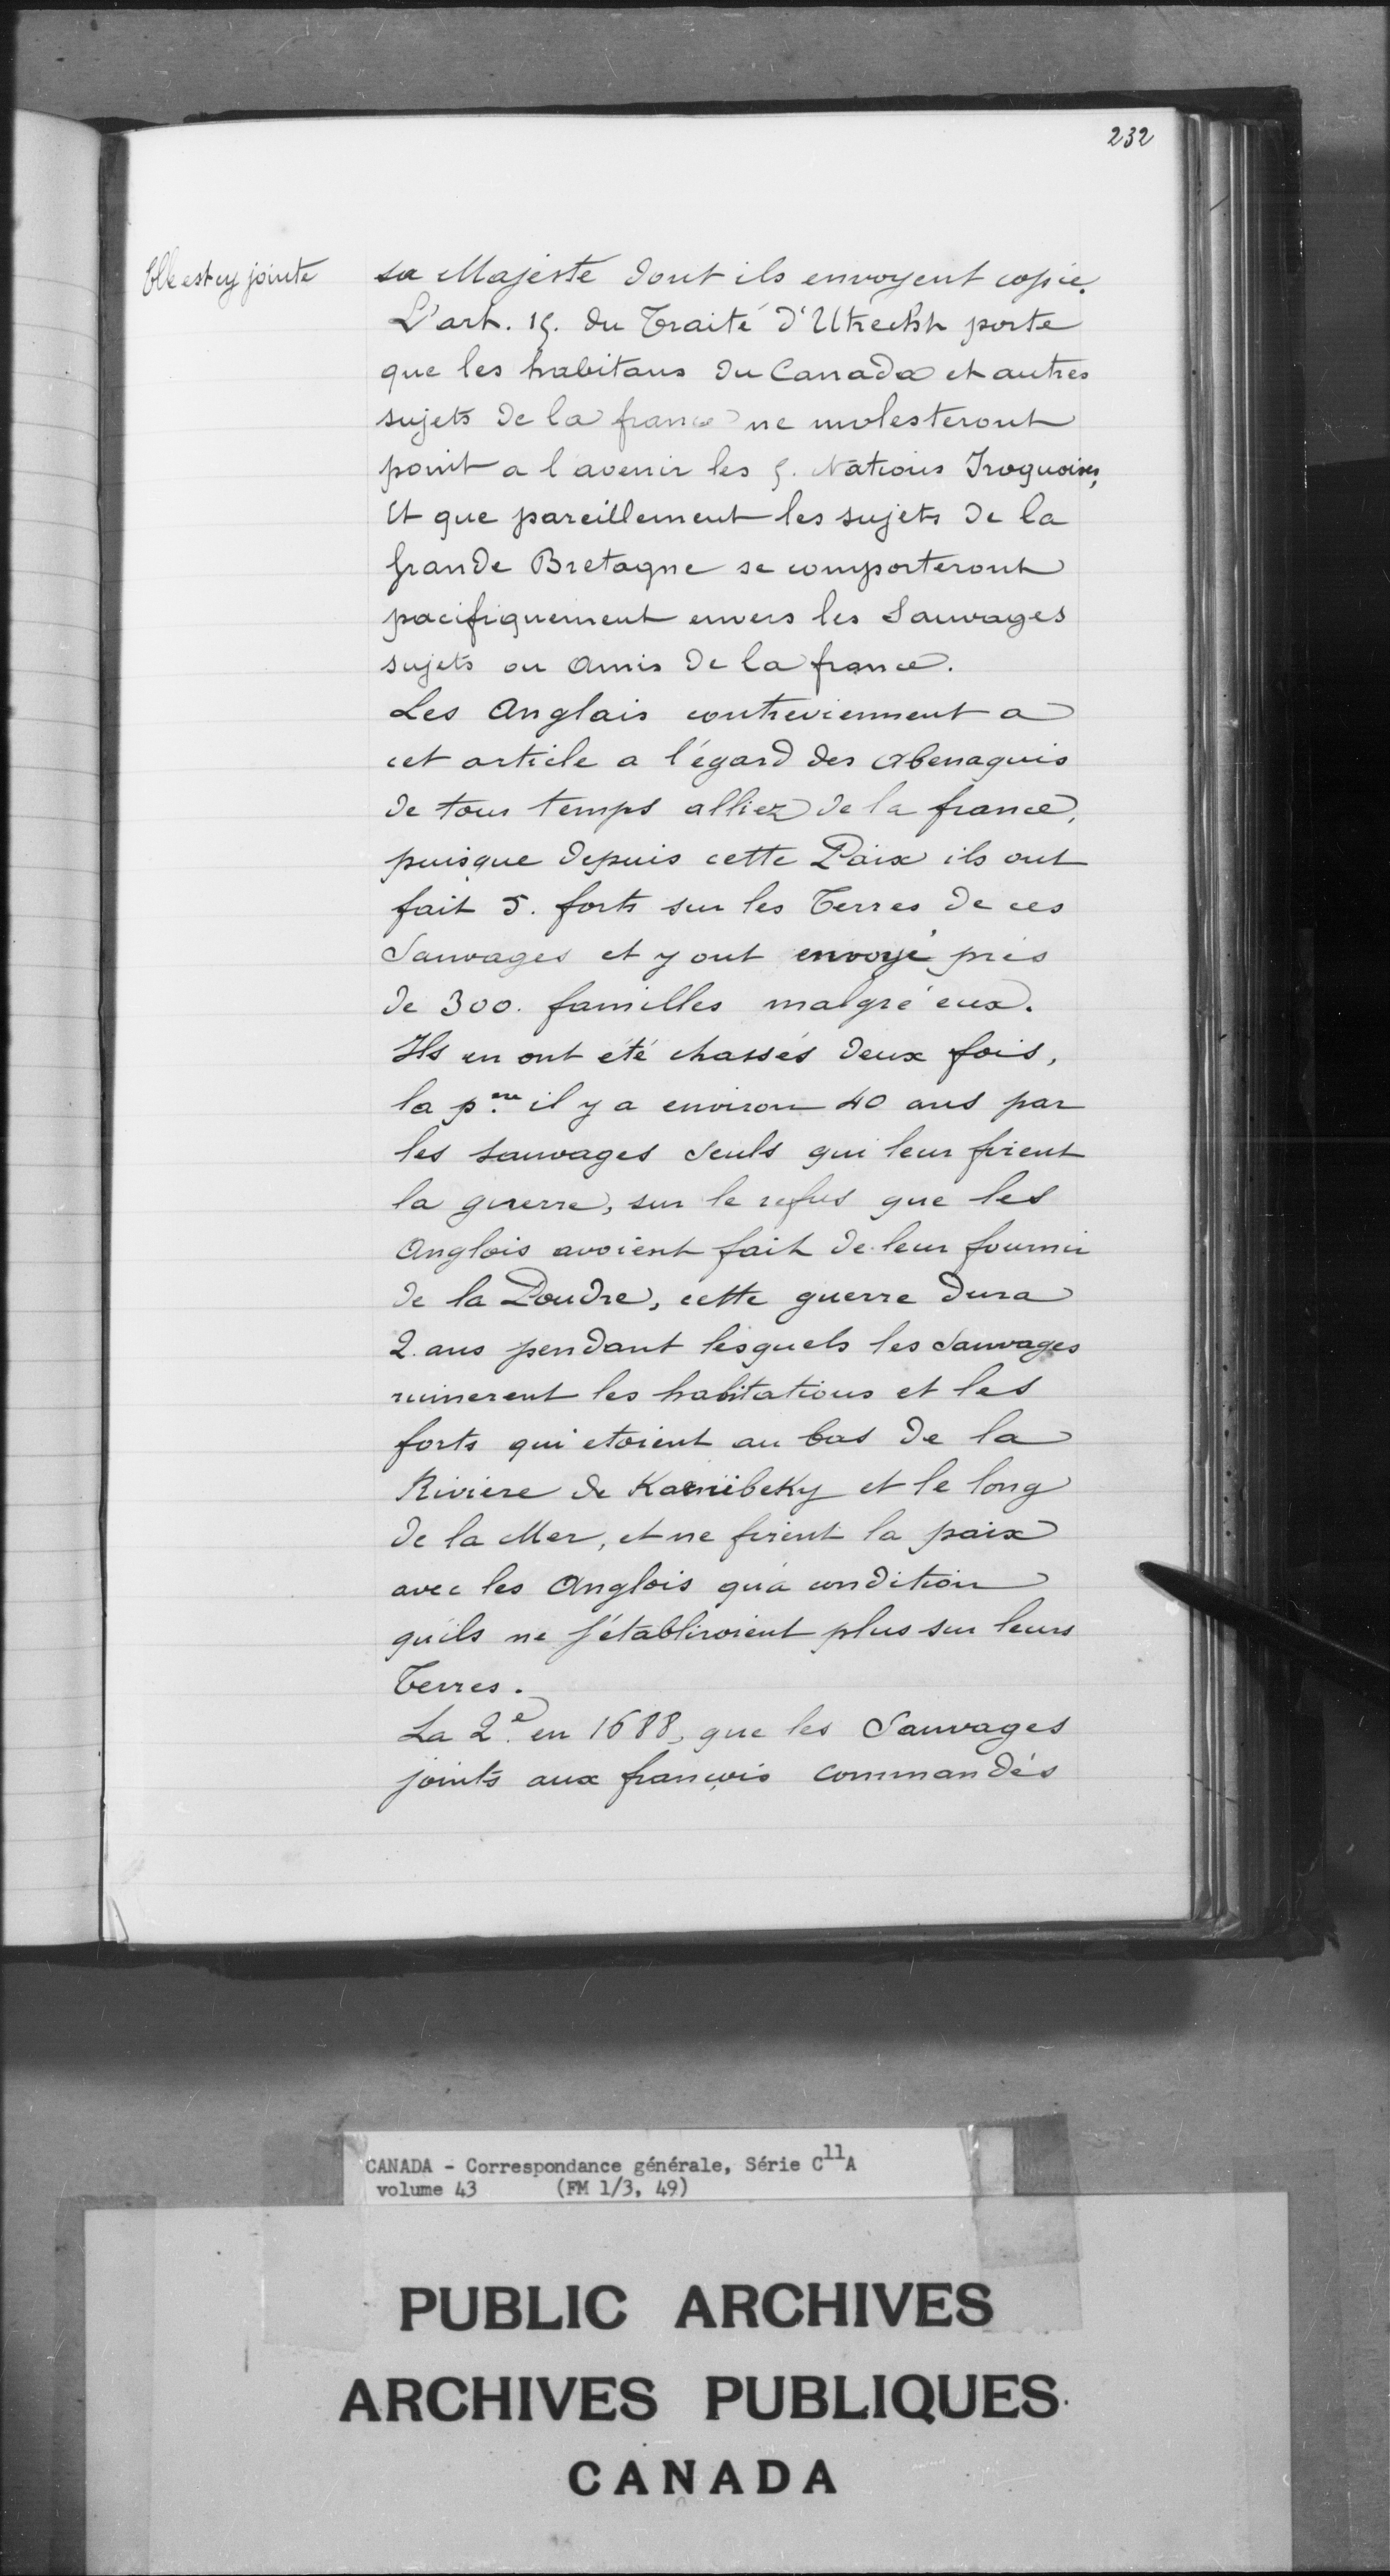 232
Elle est cy jointe
sa Majesté dont ils envoyent copie.
L'art. 15. du Traité d'Utrecht porte
que les habitans du Canada et autres
sujets de la france ne molesteront
point a l'avenir les 5. Nations Iroquoises,
Et que pareillement les sujets de la
grande Bretagne se comporteront
pacifiquement envers les Sauvages
sujets ou Amis de la france.
Les Anglais contreviennent a
cet article a l'égard des Abenaquis
de tous temps alliez de la france,
puisque depuis cette Paix ils ont
fait 5. forts sur les Terres de ces
Sauvages et y ont envoyé près
de 300. familles malgré eux.
Ils en ont été chassés deux fois,
la p.ere il y a environ 40 ans par
les sauvages seuls qui leur firent
la guerre, sur le refus que les
Anglois avoient fait de leur fournir
de la Poudre, cette guerre dura
2. ans pendant lesquels les Sauvages
ruinerent les habitations et les
forts qui etoient au bas de la
Riviere de Kanibeky et le long
de la Mer, et ne firent la paix
avec les Anglois qu'a condition
qu'ils ne s'établiroient plus sur leurs
Terres.
La 2.e en 1688, que les Sauvages
joints aux françois commandés
CANADA - Correspondance générale, Série C11A
volume 43 (FM 1/3, 49)
PUBLIC ARCHIVES
ARCHIVES PUBLIQUES
CANADA